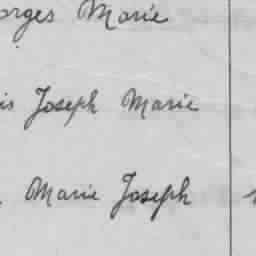 orges Marie
is Joseph Marie
Marie Joseph